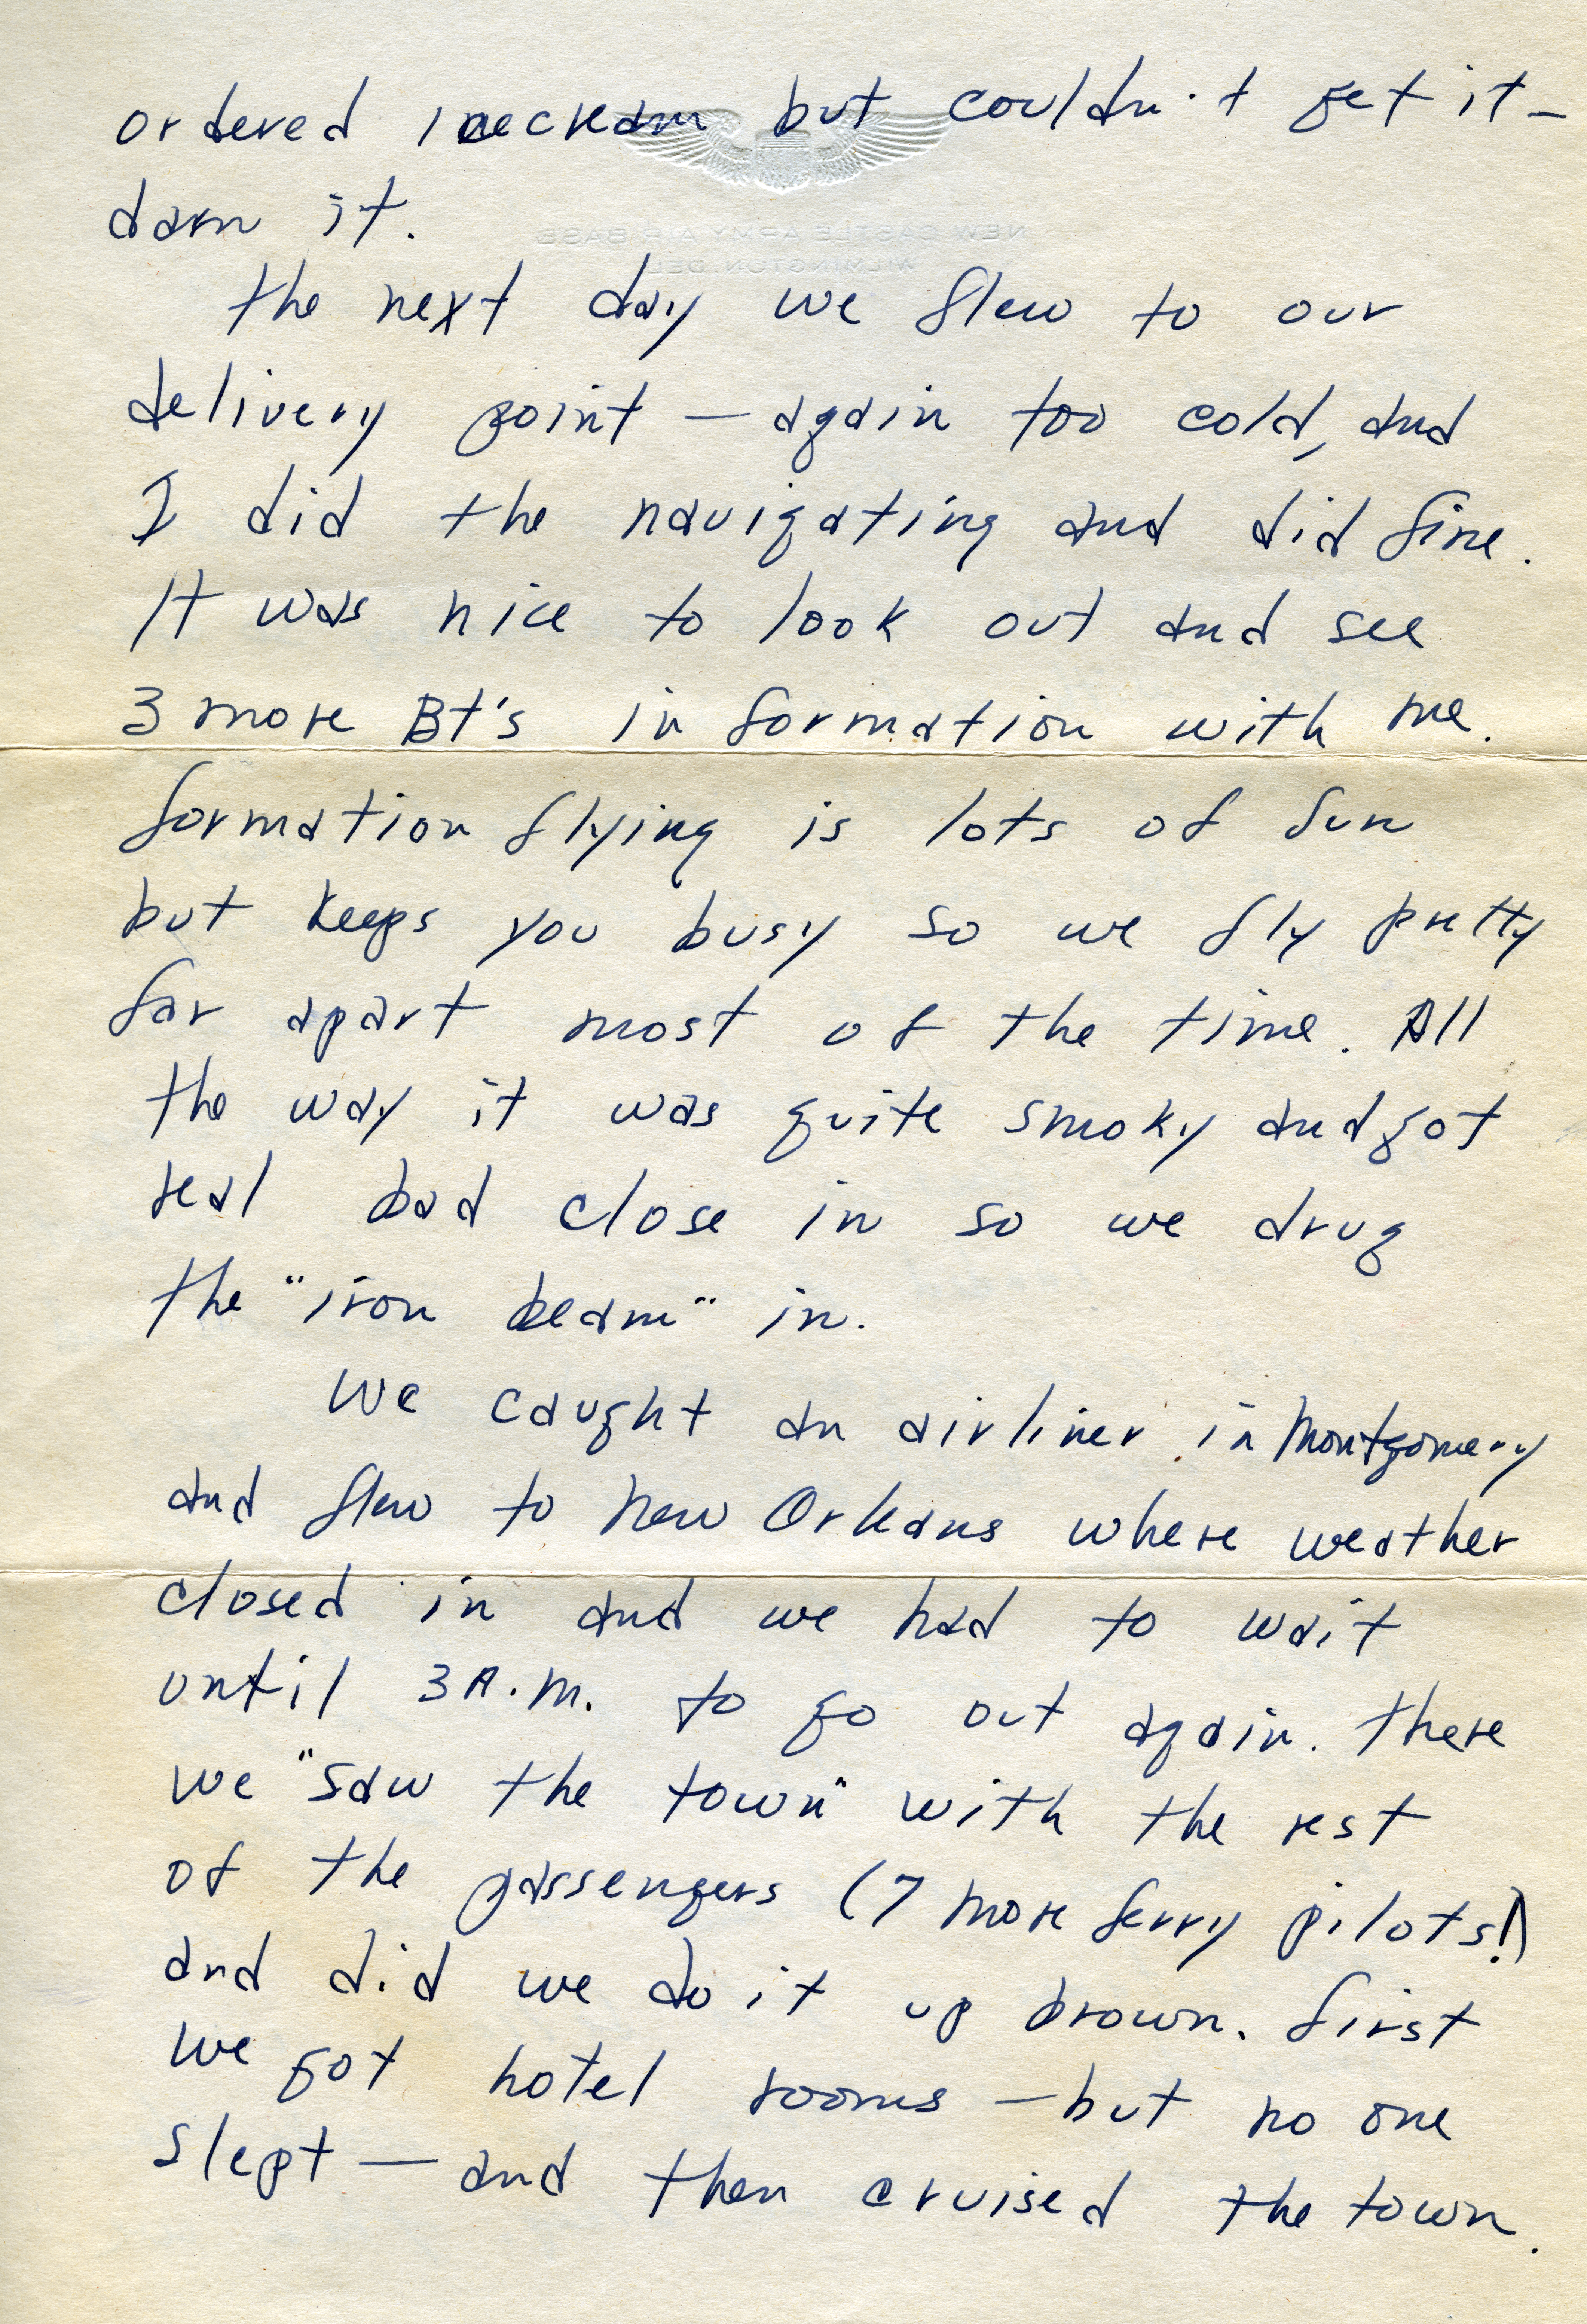 ordered icecream but couldn't get it—
NEW CASTLE ARMY AIR BASE
WILMINGTON, DEL.
darn it.
the next day we flew to our
delivery point — again too cold, and
I did the navigating and did fine.
It was nice to look out and see
3 more Bt's in formation with me.
formation flying is lots of fun
but keeps you busy so we fly pretty
far apart most of the time. All
the way it was quite smoky and got
real bad close in so we drug
the "iron beam" in.
We caught an airliner in Montgomery
and flew to New Orleans where weather
closed in and we had to wait
until 3 A.M. to go out again. there
we "saw the town" with the rest
of the passengers (7 more ferry pilots!)
and did we do it up brown. first
we got hotel rooms — but no one
slept — and then cruised the town.